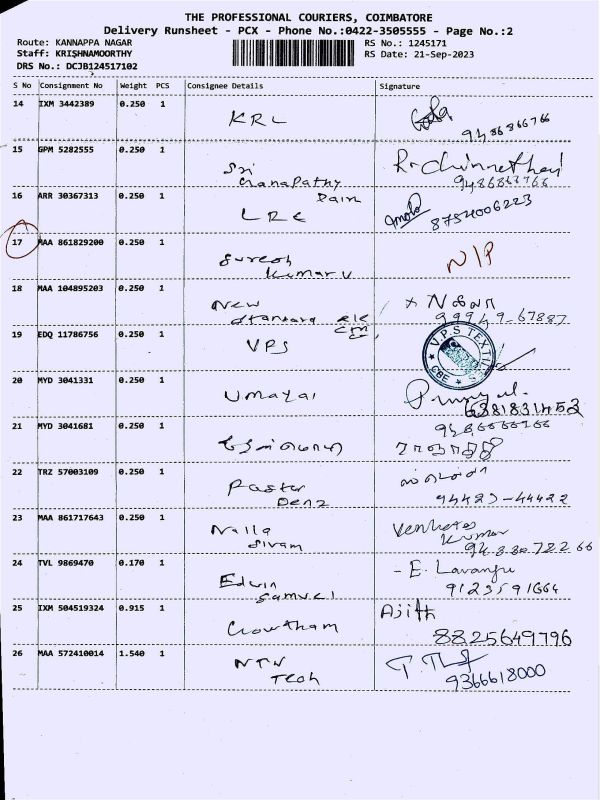 THE PROFESSIONAL COURIERS, COIMBATORE
Delivery Runsheet - PCX - Phone No.:0422-3505555 - Page No.:2
Route: KANNAPPA NAGAR
RS No.: 1245171
Staff: KRISHNAMOORTHY
RS Date: 21-Sep-2023
DRS No.: DCJB124517102
S No Consignment No Weight PCS Consignee Details Signature
14 IXM 3442389 0.250 1 KRL
15 GPM 5282555 0.250 1 Sri
Ganapathy
Pain
R. Chinnathayi
9486866766
16 ARR 30367313 0.250 1 LRE
8754006223
17 MAA 861829200 0.250 1 Suresh
Kumar V
N/P
18 MAA 104895203 0.250 1 New
Standard Ele
99949-67887
19 EDQ 11786756 0.250 1 VPS
V.P.S TEXTIL
CBE
20 MYD 3041331 0.250 1 Umayal
6381831453
21 MYD 3041681 0.250 1
22 TRZ 57003109 0.250 1 Pastor
Benz
94423-44422
23 MAA 861717643 0.250 1 Nalla
Sivam
Kumar
24 TVL 9869470 0.170 1 Edwin
Samuel
- E. Lavanya
9123591664
25 IXM 504519324 0.915 1 Gowtham
Ajith
8825649796
26 MAA 572410014 1.540 1 NTN
Tech
9366618000